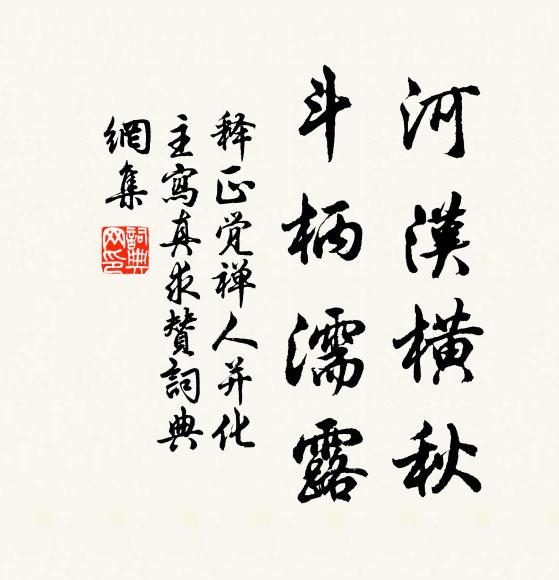 河漢橫秋
斗柄濡露
释正觉禅人并化
主寫真求贊詞典
網集
詞典網印